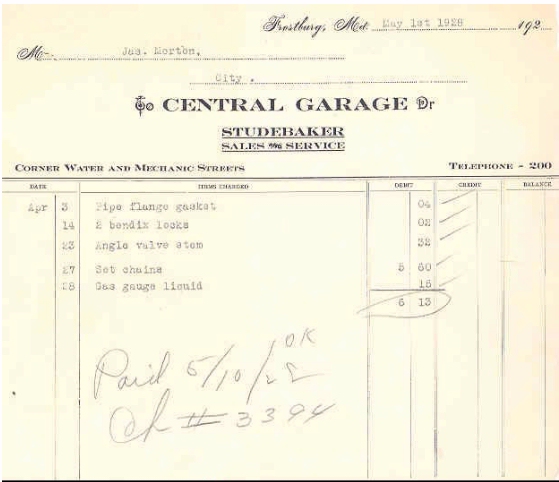 Frostburg, Md. May 1st 1928 192
M Jas. Morton,
City .
to CENTRAL GARAGE Dr
STUDEBAKER
SALES AND SERVICE
CORNER WATER AND MECHANIC STREETS TELEPHONE - 200
DATE ITEMS CHARGED DEBIT CREDIT BALANCE
Apr 3 Pipe flange gasket 04
14 2 bendix locks 02
23 Angle valve stem 32
27 Set chains 5 60
28 Gas gauge liquid 15
6 13
OK
Paid 5/10/28
Ch # 3394